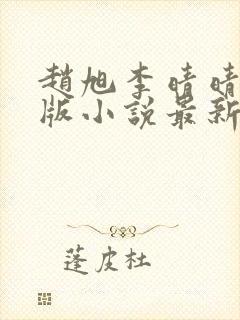 趙旭李晴晴
版小說最新
蓬皮杜